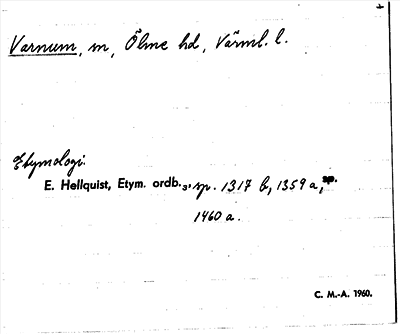 Varnum, sn, Ölme hd, Värml. l.
Etymologi.
E. Hellquist, Etym. ordb.₃, sp. 1317 b, 1359 a, sp.
1460 a.
C. M.-A. 1960.